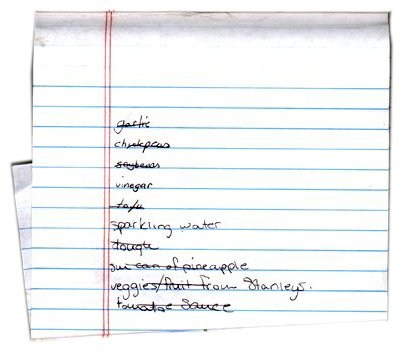 garlic
chickpeas
soybeans
vinegar
tofu
sparkling water
dough
can of pineapple
veggies/fruit from Stanleys.
tomatoe sauce